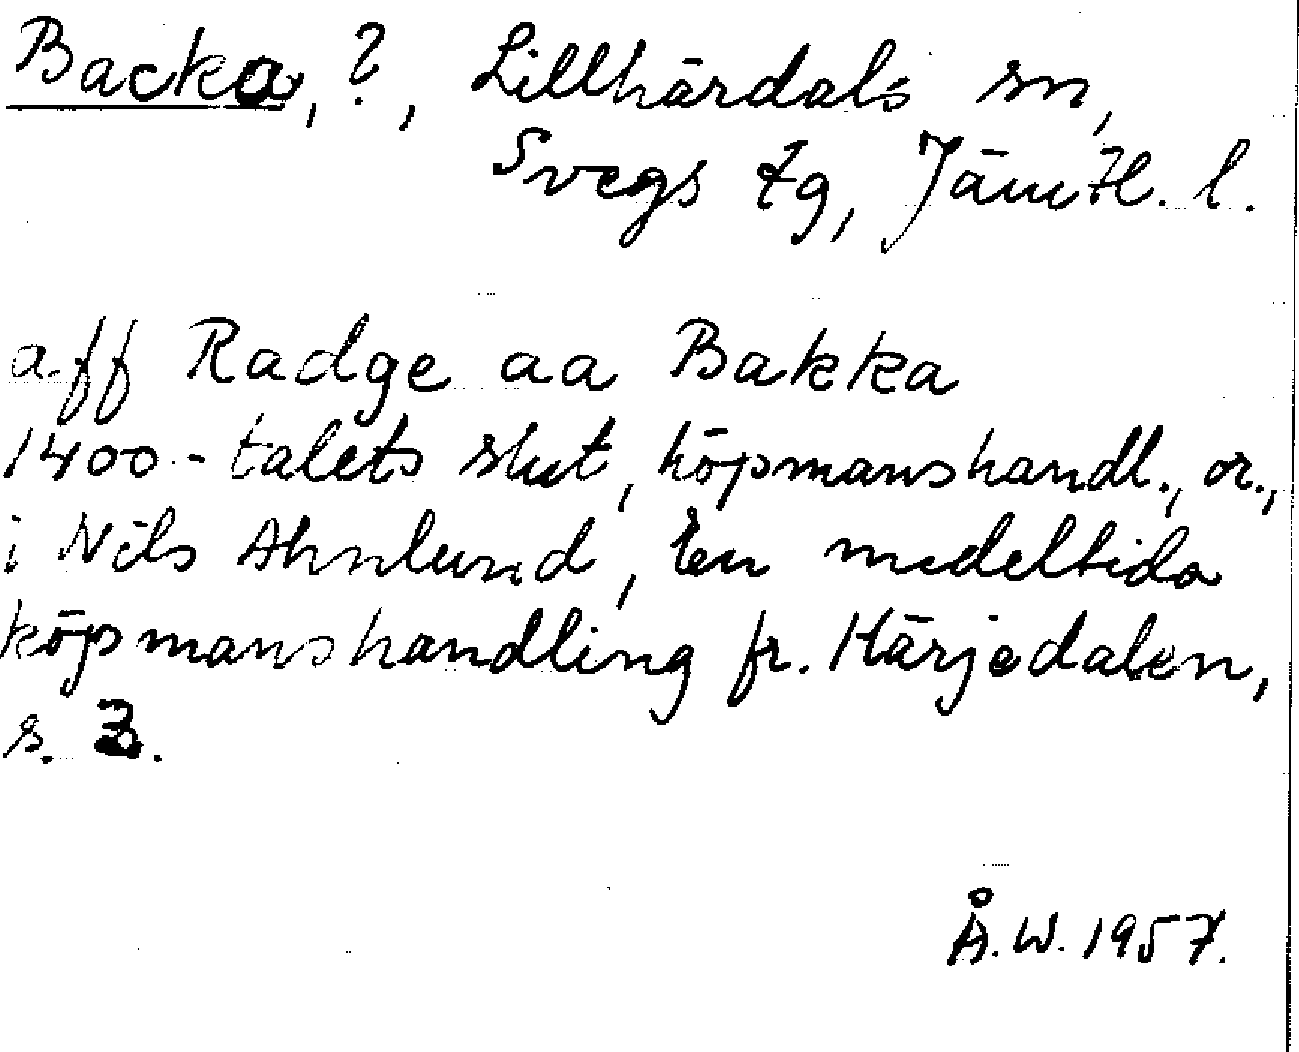 Backa, ?, Lillhärdals sn,
Svegs tg, Jämtl. l.
aff Radge aa Bakka
1400-talets slut, köpmanshandl., or.,
i Nils Ahnlund, En medeltida
köpmanshandling fr. Härjedalen,
s. 3.
Å.W. 1957.